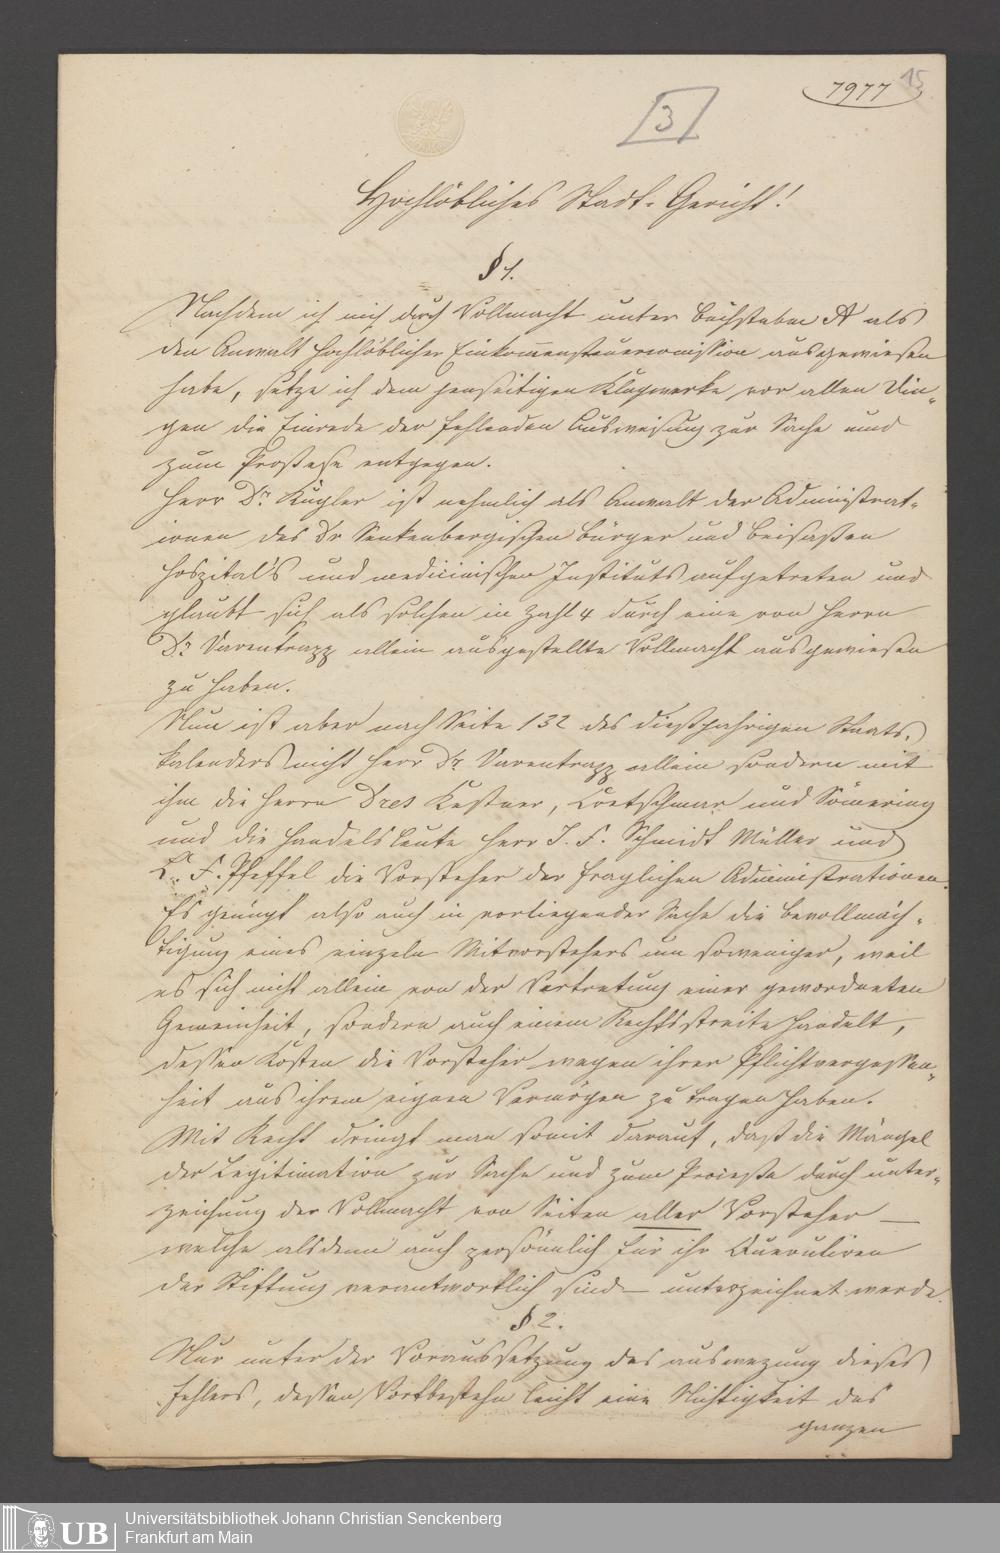 15
7977
3
Hochlöbliches Stadt-Gericht!
§ 1.
Nachdem ich mich durch Vollmacht unter Buchstaben A als
den Anwalt hochlöblicher Einkommensteuercommission ausgewiesen
habe, setze ich dem jenseitigen Klagwerke vor allen Din-
gen die Einrede der fehlenden Ausweisung zur Sache und
zum Prozesse entgegen.
Herr Dr. Kugler ist nehmlich als Anwalt der Administrat-
ionen des Dr Senkenbergischen Bürger und Beisassen
Hospital's und medicinischen Instituts aufgetreten und
glaubt sich als solchen in Zahl 4 durch eine von Herrn
Dr. Varentrapp allein ausgestellte Vollmacht ausgewiesen
zu haben.
Nun ist aber nach Seite 132 des diesjahrigen Staats-
kalenders nicht Herr Dr. Varentrapp allein sondern mit
ihm die Herrn Dres Kestner, Lretschmar und Sömering
und die Handelsleute Herr J. F. Schmidt Müller und
L. F. Pfeffel die Vorsteher der fraglichen Administrationen.
Es genügt also auch in vorliegender Sache die Bevollmäch-
tigung eines einzeln Mitvorstehers um soweniger, weil
es sich nicht allein von der Vertretung einer gewordneten
Gemeinheit, sondern auch einem Rechtsstreite handelt,
dessen Kosten die Vorsteher wegen ihrer Pflichtvergessen-
heit aus ihrem eignen Vermögen zu tragen haben.
Mit Recht dringt man somit darauf, daß die Mängel
der Legitimation zur Sache und zum Processe durch unter-
zeichnung der Vollmacht von Seiten aller Vorsteher —
welche alsdenn auch persönnlich für ihr Queruliren
der Stiftung verantwortlich sind — unterzeichnet werde.
§ 2.
Nur unter der Voraussetzung des auswezung dieses
Fehlers, dessen Vortbestehn leicht eine Nichtigkeit des
ganzen
UB
Universitätsbibliothek Johann Christian Senckenberg
Frankfurt am Main